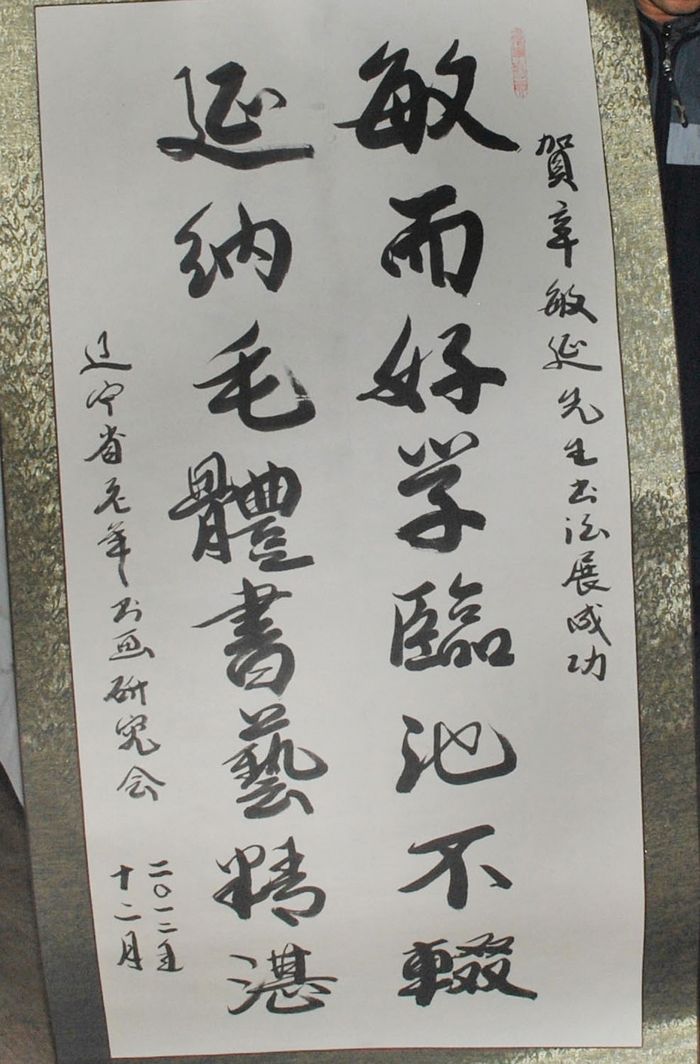 賀辛敏延先生书法展成功
敏而好学臨池不輟
延纳毛體書藝精湛
辽宁省老年书画研究会
二〇一二年
十二月